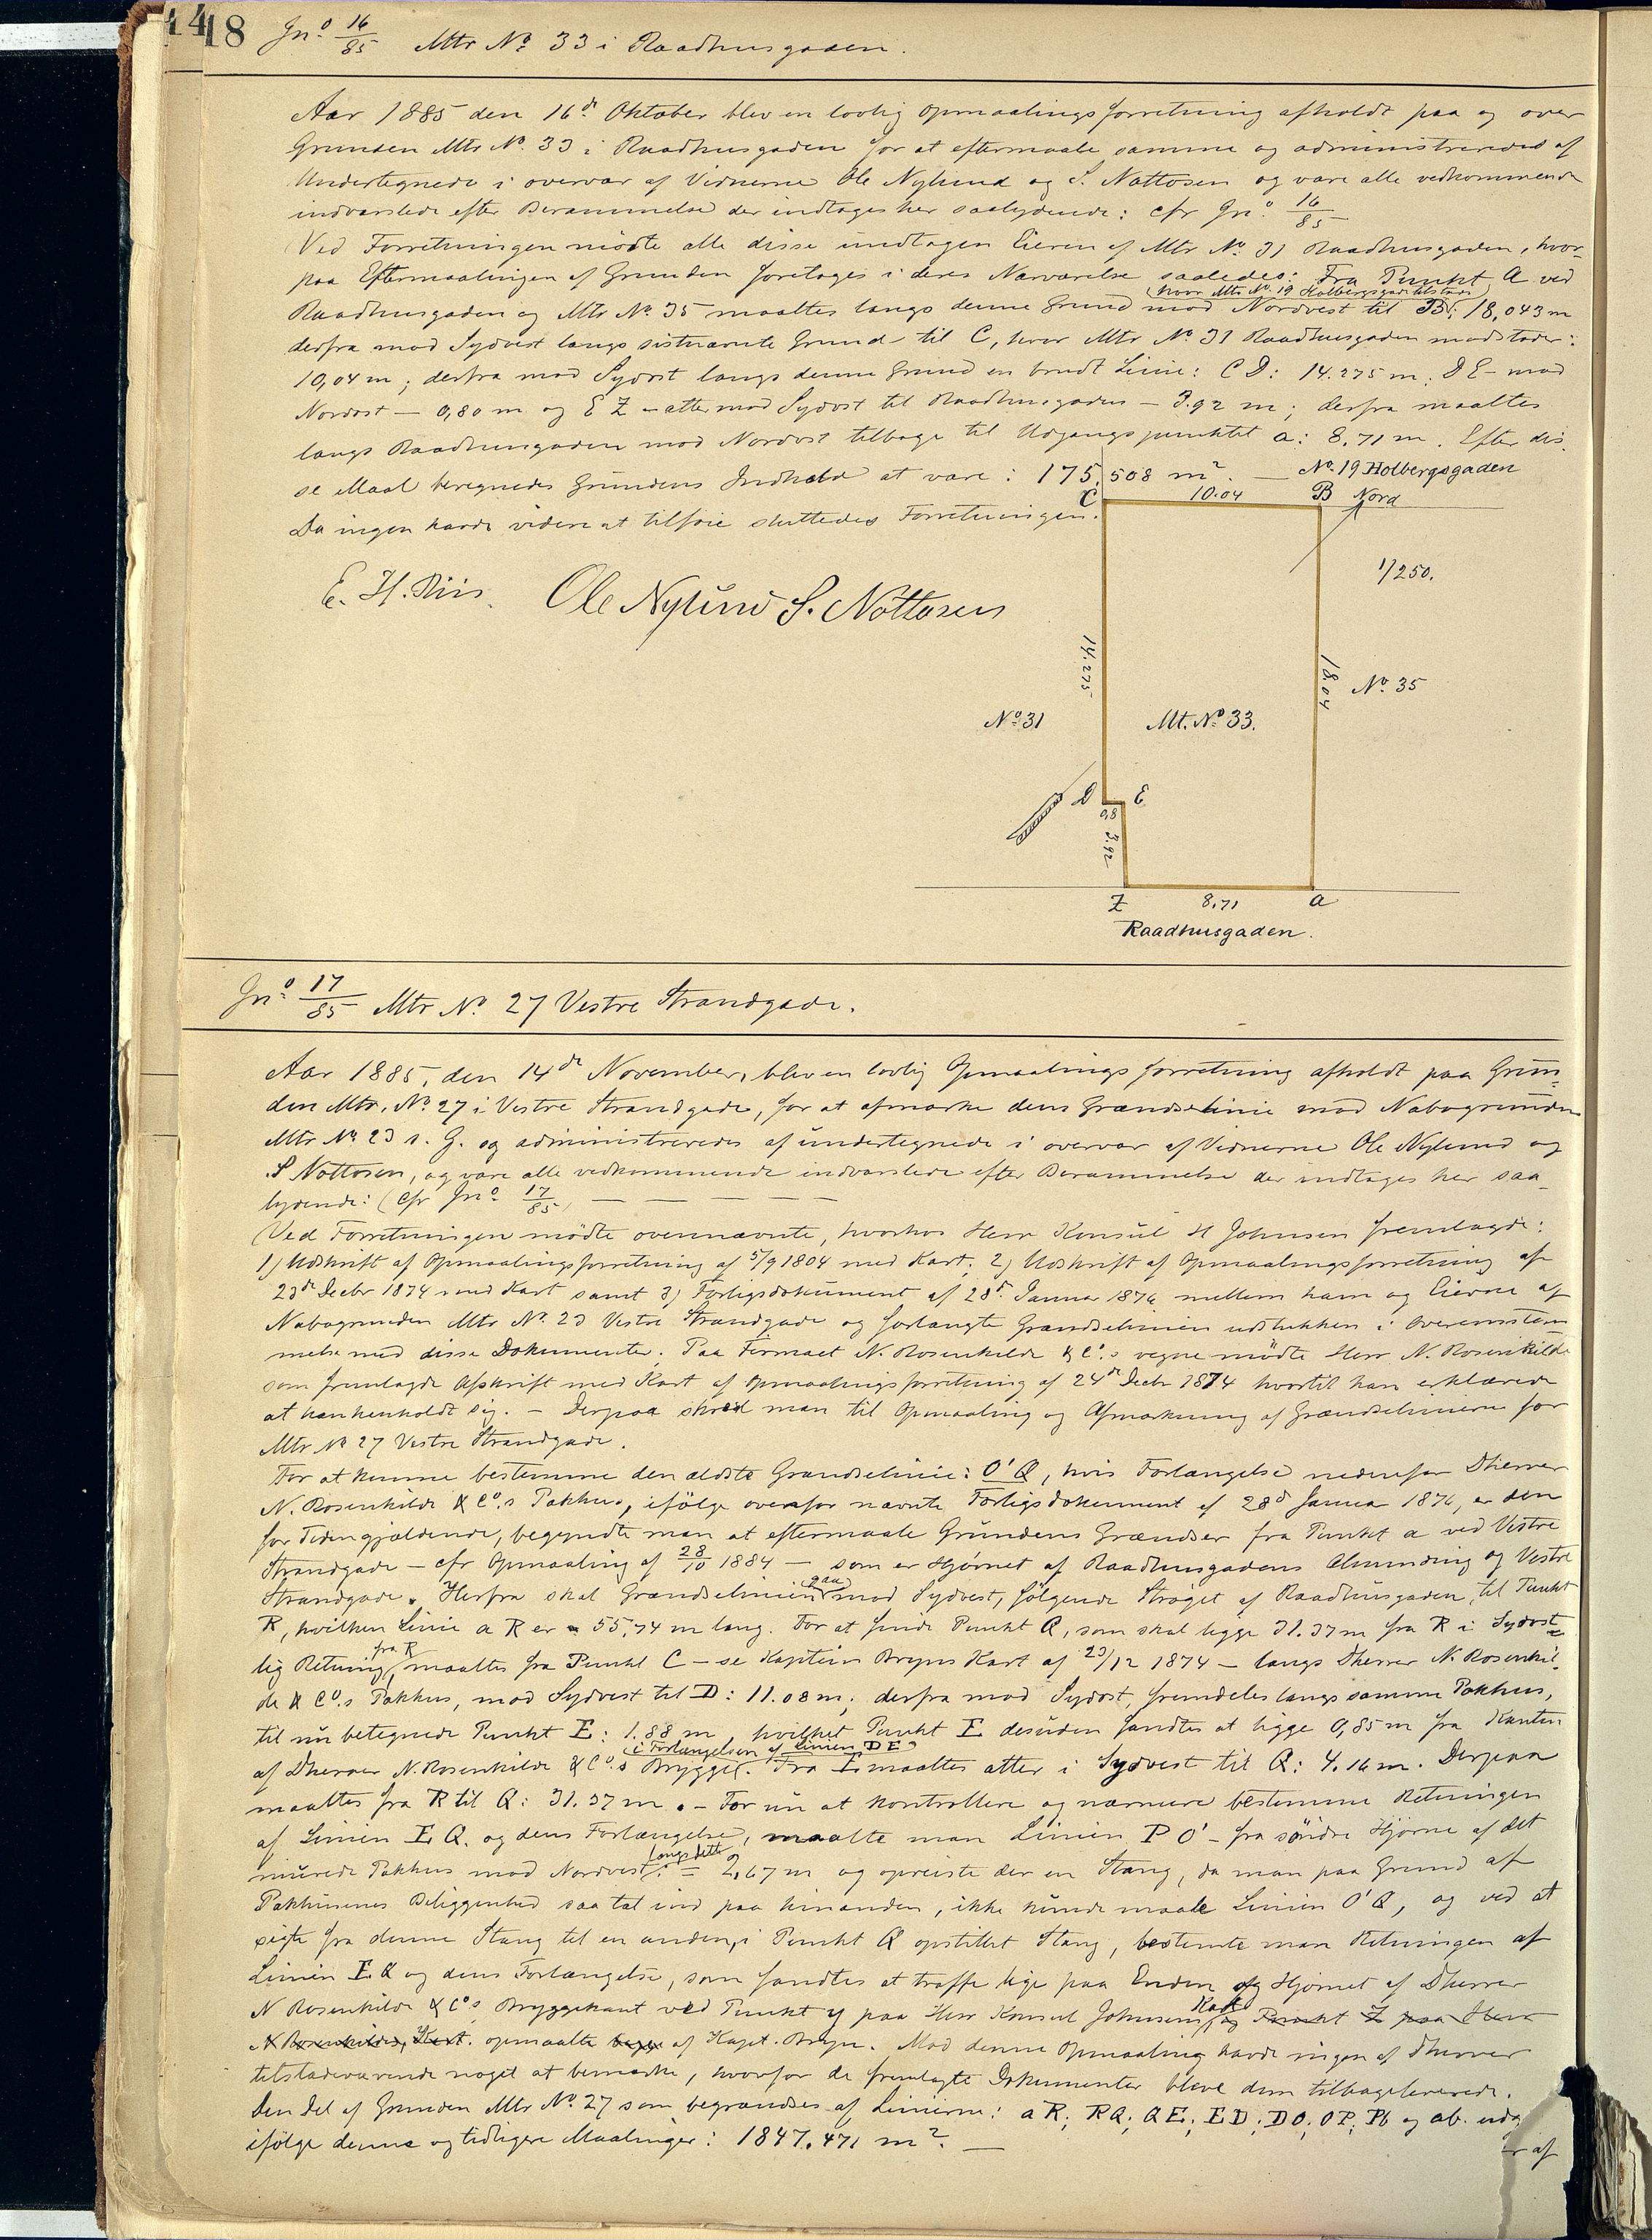 14
18 Jn.o 16/85 Mtr No. 33 i Raadhusgaden.
Aar 1885 den 16de Oktober blev en lovlig Opmaalingsforretning afholdt paa og over
Grunden Mtr No. 33 i Raadhusgaden for at eftermaale samme og administreredes af
Undertegnede i overvær af Vidnerne Ole Nylund og S. Nottosen og vare alle vedkommende
indvarslede efter Berammelse der indtages her saalydende: cfr Jn.o 16/85
Ved Forretningen mödte alle disse undtagen Eieren af Mtr No. 31 Raadhusgaden, hvor-
paa Eftermaalingen af Grunden foretages i deres Nærværelse saaledes: Fra Punkt A ved
(hvor Mtr No. 19 Holbergsgad. tilstöder)
Raadhusgaden og Mtr No. 35 maaltes langs denne Grund mod Nordvest til B: 18,043 m
derfra mod Sydvest langs sistnævnte Grund til C, hvor Mtr No. 31 Raadhusgaden modstöder:
10,04 m; derfra mod Sydost langs denne Grund en brudt Linie: C D: 14.275 m; D E - mod
Nordost - 0,80 m og E Z - atter mod Sydost til Raadhusgaden - 3.92 m; derfra maaltes
langs Raadhusgaden mod Nordost tilbage til Udgangspunktet a: 8,71 m. Efter dis-
se Maal beregnedes Grundens Indhold at være: 175,508 m2. —
Da ingen havde videre at tilföie sluttedes Forretningen.
E. H. Riis. Ole Nylund S. Nottosen
No. 19 Holbergsgaden
C 10.04 B Nord
1/250.
14.275
18.04
No. 35
No. 31
Mt. No. 33.
D E
0,8
3.92
Z 8,71 a
Raadhusgaden.
Jn.o 17/85 Mtr No. 27 Vestre Strandgade.
Aar 1885, den 14de November, blev en lovlig Opmaalingsforretning afholdt paa Grun-
den Mtr. No. 27 i Vestre Strandgade, for at afmærke dens Grændselinie mod Nabogrunden
Mtr No. 23 s. G. og administreredes af undertegnede i overvær af Vidnerne Ole Nylund og
S Nottosen, og vare alle vedkommende indvarslede efter Berammelse der indtages her saa-
lydende: (cfr Jn.o 17/85) — — — — —
Ved Forretningen mödte ovennævnte, hvorhos Herr Konsul H Johnsen fremlagde:
1) Udskrift af Opmaalingsforretning af 5/9 1804 med Kart; 2) Udskrift af Opmaalingsforretning af
23de Decbr 1874 med Kart samt 3) Forligsdokument af 28de Januar 1876 mellem ham og Eierne af
Nabogrunden Mtr No. 23 Vestre Strandgade og forlangte Grændselinien udstukken i Overensstem-
melse med disse Dokumenter. Paa Firmaet N. Rosenkilde & Co.s vegne mödte Herr N. Rosenkilde
som fremlagde Afskrift med Kart af Opmaalingsforretning af 24de Decbr 1874 hvortil han erklærede
at han henholdt sig. - Derpaa skred man til Opmaaling og Afmærkning af Grændselinierne for
Mtr No 27 Vestre Strandgade.
For at kunne bestemme den ældste Grændselinie: O' Q, hvis Forlængelse nedenfor Dherrer
N. Rosenkilde & Co.s Pakhus, ifölge ovenfor nævnte Forligsdokument af 28de Januar 1876, er den
for Tiden gjældende, begyndte man at eftermaale Grundens Grændser fra Punkt a ved Vestre
Strandgade - cfr Opmaaling af 28/10 1884 - som er Hjörnet af Raadhusgadens Almending og Vestre
Strandgade. Herfra skal Grændselinien gaa mod Sydvest, fölgende Ströget af Raadhusgaden, til Punkt
R, hvilken Linie a R er = 55,74 m lang. For at finde Punkt Q, som skal ligge 31.37 m fra R i Sydost-
lig Retning fra R maaltes fra Punkt C - se Kaptein Bryns Kart af 23/12 1874 - langs Dherrer N. Rosenkil-
de & Co.s Pakhus, mod Sydvest til D: 11.08 m; derfra mod Sydost, fremdeles langs samme Pakhus,
til nu betegnede Punkt E: 1.88 m, hvilket Punkt E desuden fandtes at ligge 0,85 m fra Kanten
(i Forlængelsen af Linien D E)
af Dherrer N. Rosenkilde & Co.s Brygge. Fra E maaltes atter i Sydvest til Q: 4.16 m. Derpaa
maaltes fra R til Q: 31.37 m. - For nu at kontrollere og nærmere bestemme Retningen
af Linien E Q. og dens Forlængelse, maalte man Linien P O' - fra söndre Hjörne af det
murede Pakhus mod Nordvest langs dette: = 2,67 m og opreiste der en Stang, da man paa Grund af
Pakhusenes Beliggenhed saa tæt ind paa hinanden, ikke kunde maale Linien O' Q, og ved at
sigte fra denne Stang til en anden, i Punkt Q opstillet Stang, bestemte man Retningen af
Linien E Q og dens Forlængelse, som fandtes at træffe lige paa Enden og Hjörnet af Dherrer
N Rosenkilde & Co.s Bryggekant ved Punkt y paa Herr Konsul Johnsens Kart og Punkt Z paa Herr
N Rosenkildes Kart. opmaalte af Kapt. Bryn. Mod denne Opmaaling havde ingen af Dherrer
tilstedeværende noget at bemærke, hvorfor de fremlagte Dokumenter bleve dem tilbageleverede.
Den Del af Grunden Mtr No. 27 som begrændses af Linierne: a R; R Q; Q E; E D; D O; O P; P b og ab. udg
ifölge denne og tidligere Maalinger: 1847.471 m2. —
r af